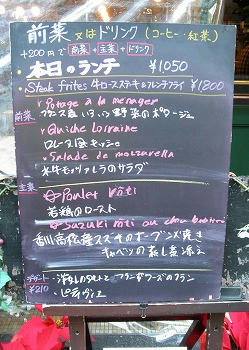 前菜 又は ドリンク (コーヒー・紅茶)
+200円で 前菜 + 主菜 + ドリンク
・本日のランチ ¥1050
・Steak frites 牛ロースステキ&フレンチフライ ¥1800
前菜
・Potage à la ménager
フランス産いろいろ野菜のポタージュ
・Quiche Lorraine
ロレーヌ風キッシュ
・Salade de mozzarella
水牛モッツァレラのサラダ
主菜
Poulet rôti
若鶏のロースト
Suzuki rôti au chou
香川高松産スズキのオーブン焼き
キャベツの蒸し煮添え
デザート
¥210
フラン
ピティヴィエ